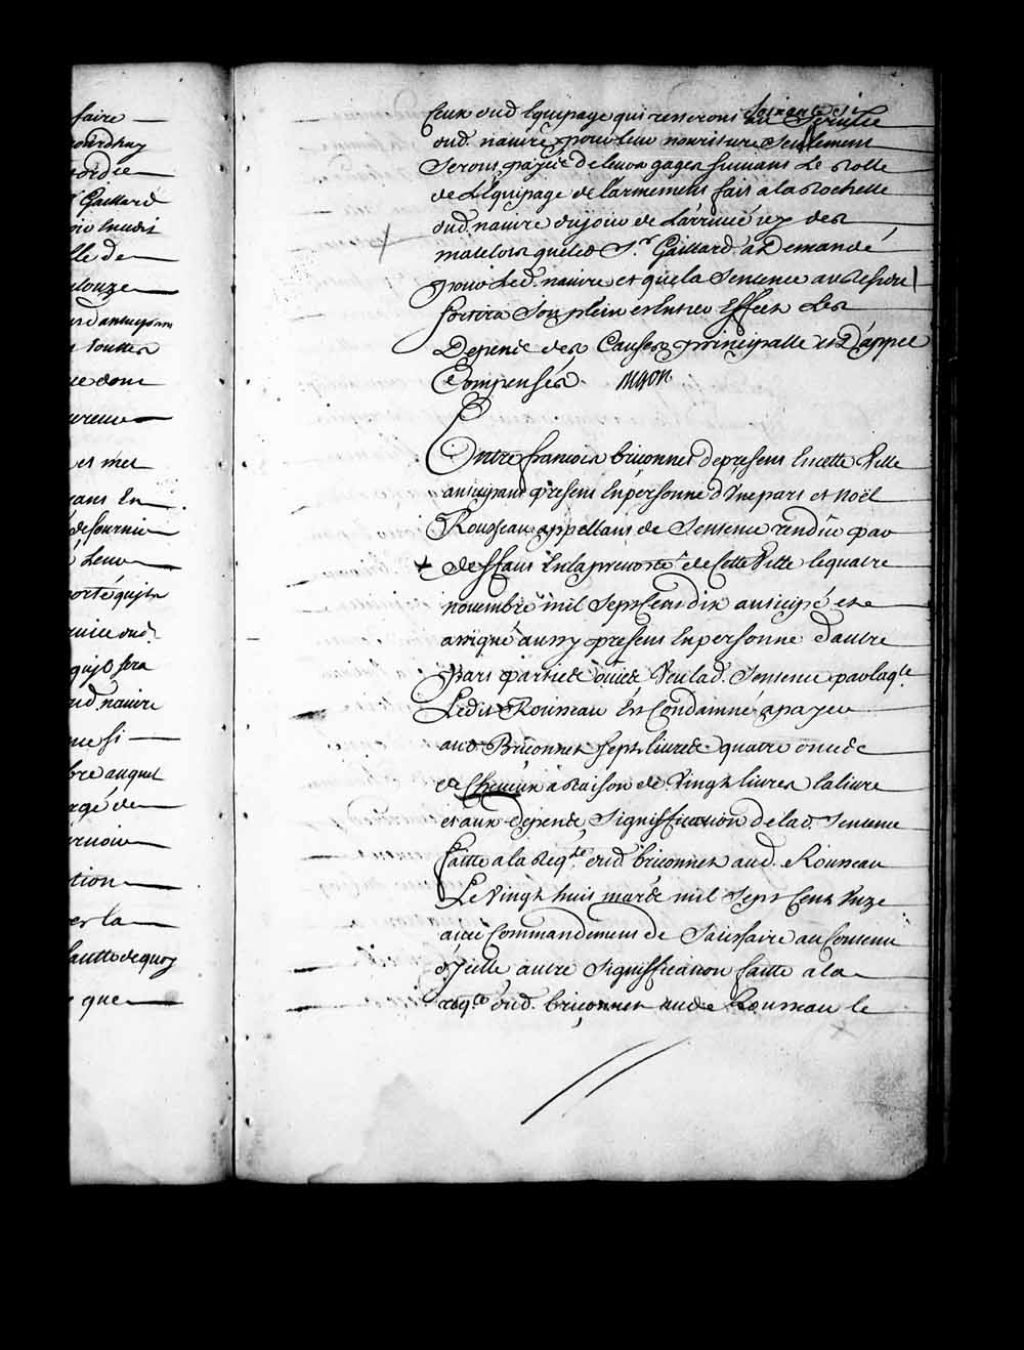 faire
ordée
Gaillard
lle de
et mer
ans En
de fournir
Leur
vice oud.
qu'il sera
oud. navire
bre auquel
tion
er la
faulte de quoy
que
Ceux dud Equipage qui resterons
dud. navire pour leur nouriture Seulement
Serons payéz de leurs gages suivans Le Rolle
de L'Equipage de l'armement fait a la Rochelle
dud. navire du jour de L'arrivée icy des
matelots que led Sr. Gaillard a Demandé
pour Led. navire et que la Sentence au Residu
Sortira Son plein et Entier Effect Les
Depens des Causes principalle et D'appel
Compensés. Bigon
Entre francois briconnet de present En cette Ville
anticipant present En personne d'Une part et Noël
Rousseau appellant de Sentence rendue par
deffaut En la prevosté de Cette Ville le quatre
novembre mil Sept Cens dix anticipé et
assigné aussy present En personne d'autre
part parties ouies Veu lad. Sentence par laqle
Ledit Rousseau Est Condamné a payer
aud Briconnet Sept livres quatre onces
de Cheveux a Raison de Vingt livres la livre
et aux depens, Signiffication de lad. Sentence
faitte a la Reqte dud briconnet aud. Rousseau
Le Vingt huit mars mil Sept Cent Unze
avec Commandement de Satisfaire au Contenu
d'Icelle autre Signiffication faitte a la
reqte dud. briconnet aud. Rousseau le